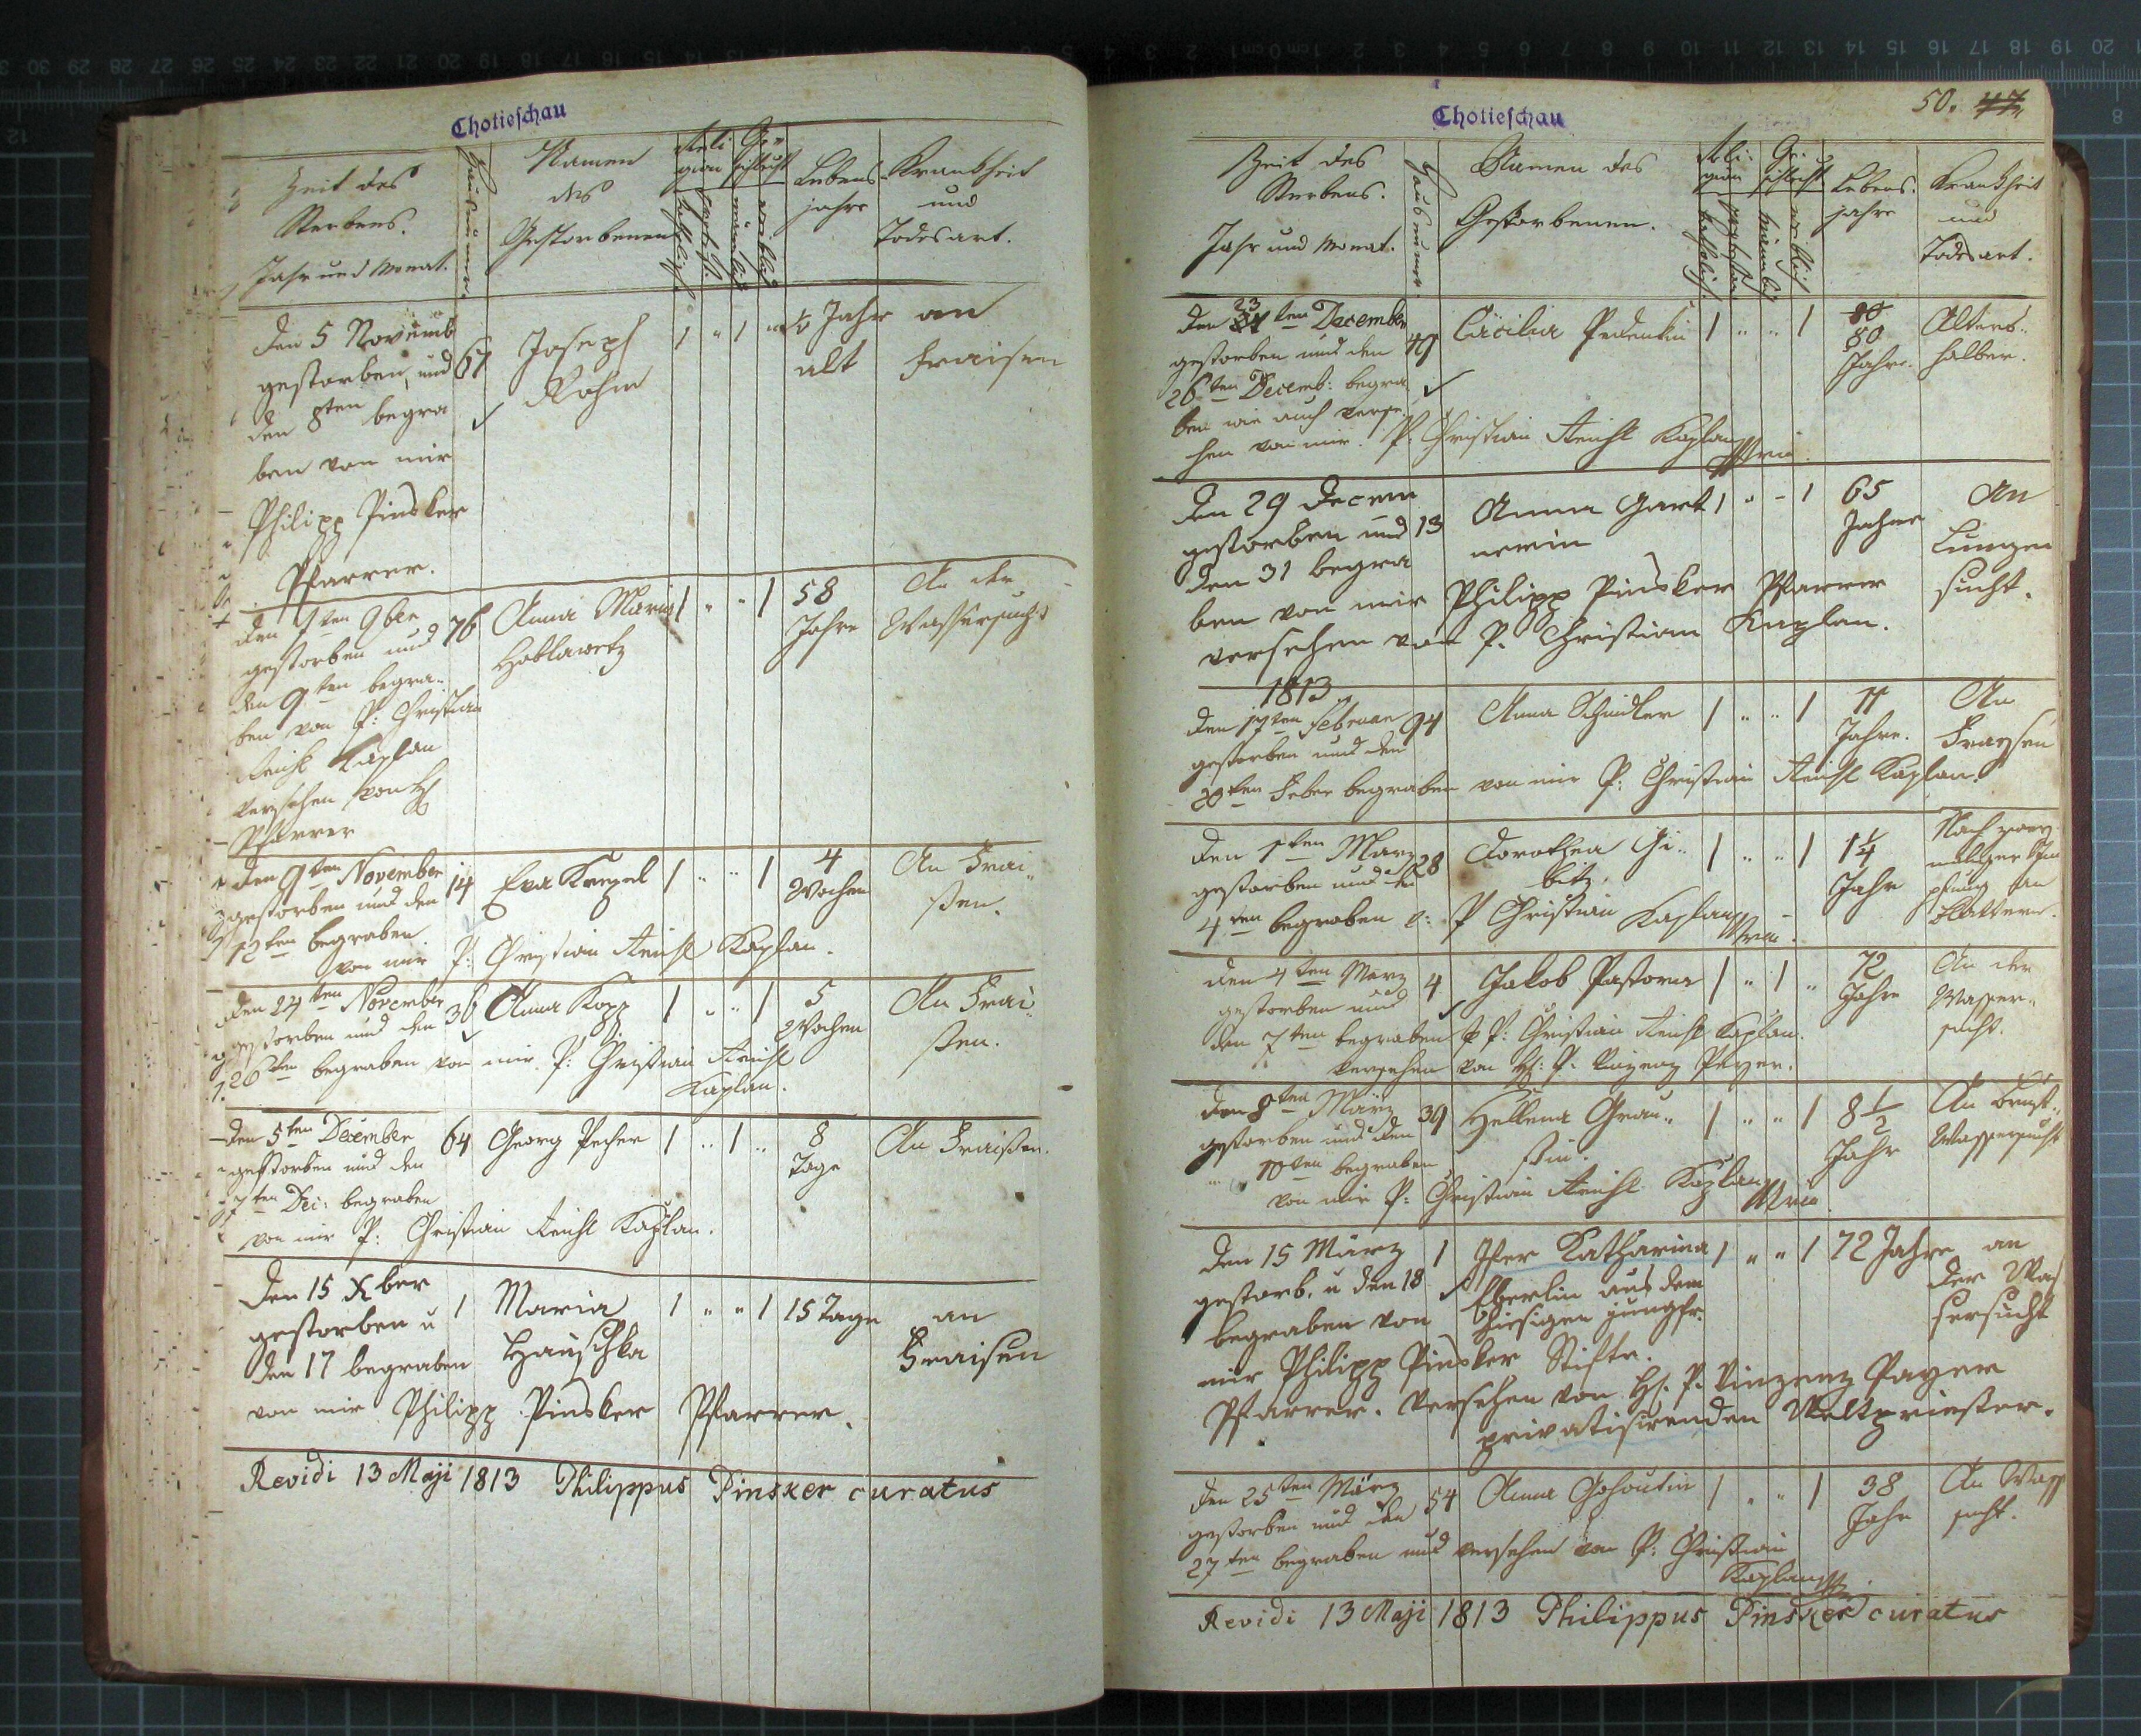 Chotieschau
Zeit des
Sterbens.
Jahr und Monat.
Hausnumer.
Namen
des
Gestorbenen
Reli-
gion
katholisch
protest.
Ge-
schlecht
männlich
weiblich
Lebens-
jahre
Krankheit
und
Todesart.
den 5 Novemb
gestorben, und
den 8ten begra
ben von mir
Philipp Pinsker
Pfarrer.
67
Joseph
Rohm
1 " 1 "
Jahr
alt
an
Fraisen
den 7ten 9ber
gestorben und
den 9ten begra-
ben von P: Christian
Reichl Kaplan
versehen von H
Pfarrer
76
Anna Maria
Hoblawetz
1 " " 1
58
Jahre
An der
Wassersucht
den 9ten November
gestorben und den
12ten begraben.
von mir P: Christian Reichl Kaplan.
14
Eva Krepel
1 " " 1
4
Wochen
An Frai-
sen.
den 24ten November
gestorben und den
26ten begraben von mir P: Christian Reichl
Kaplan.
36
Anna Kopp
1 " " 1
5
Wochen
An Frai-
sen.
den 5ten December
gestorben und den
7ten Dec: begraben
von mir P: Christian Reichl Kaplan.
64
Georg Pecher
1 " 1 "
8
Tage
An Fraisen.
Den 15 Xber
gestorben u
den 17 begraben
von mir Philipp Pinsker Pfarrer.
1
Maria
Hauschka
1 " " 1
15 Tage
an
Fraisen
Revidi 13 Maji 1813 Philippus Pinsker curatus
Chotieschau
50. 47
Zeit des
Sterbens.
Jahr und Monat.
Hausnumr.
Namen des
Gestorbenen.
Reli-
gion
katholisch
protestan
Ge-
schlecht
männlich
weiblich
Lebens-
jahre
Krankheit
und
Todesart.
den 23ten December
gestorben und den
26ten Decemb: begra
ben wie auch verse-
hen von mir. P: Christian Reichl Kaplan
49
Cäcilia Pedentin
1 " " 1
80
80
Jahre.
Alters-
halber.
den 29 Decem
gestorben und
den 31 begra
ben von mir Philipp Pinsker Pfarrer
versehen von P. Christian Kaplan.
13
Anna Gart
nerin
1 " - 1
65
Jahre
An
Lungen
sucht.
1813
den 17ten Februar
gestorben und den
20ten Feber begraben von mir P: Christian Reichl Kaplan.
94
Anna Schindler
1 " " 1
Jahre.
An
Fraysen
den 1ten März
gestorben und den
4ten begraben v: P Christian Kaplan
28
Dorothea Gi-
bitz.
1 " " 1
1 1/4
Jahr
Nach zwey
maliger Im
pfung an
Blattern.
den 4ten März
gestorben und
den 7ten begraben P: Christian Reichl Kaplan.
versehen von H: P. Vinzenz Payer.
4
Jakob Pastorn
1 " 1 "
72
Jahre
An der
Wasser-
sucht.
den 8ten März
gestorben und den
10ten begraben
von mir P: Christian Reichl Kaplan
39
Hellena Grau-
sin.
1 " " 1
8 1/2
Jahr
An Brust-
Wassersucht
den 15 März
gestorb. u den 18
begraben von
mir Philipp Pinsker
Pfarrer. versehen von H. P. Vinzenz Payer
privatisirenden Weltpriester.
1
Katharina
Eberlin aus dem
hiesigen Jungfr.
Stifte.
1 " " 1
72 Jahre
an
der Was
sersucht
den 25ten März
gestorben und den
27ten begraben und versehen von P: Christian
Kaplan
54
Anna Gohoutin
1 " " 1
38
Jahr
An Wass
sucht.
Revidi 13 Maji 1813 Philippus Pinsker curatus